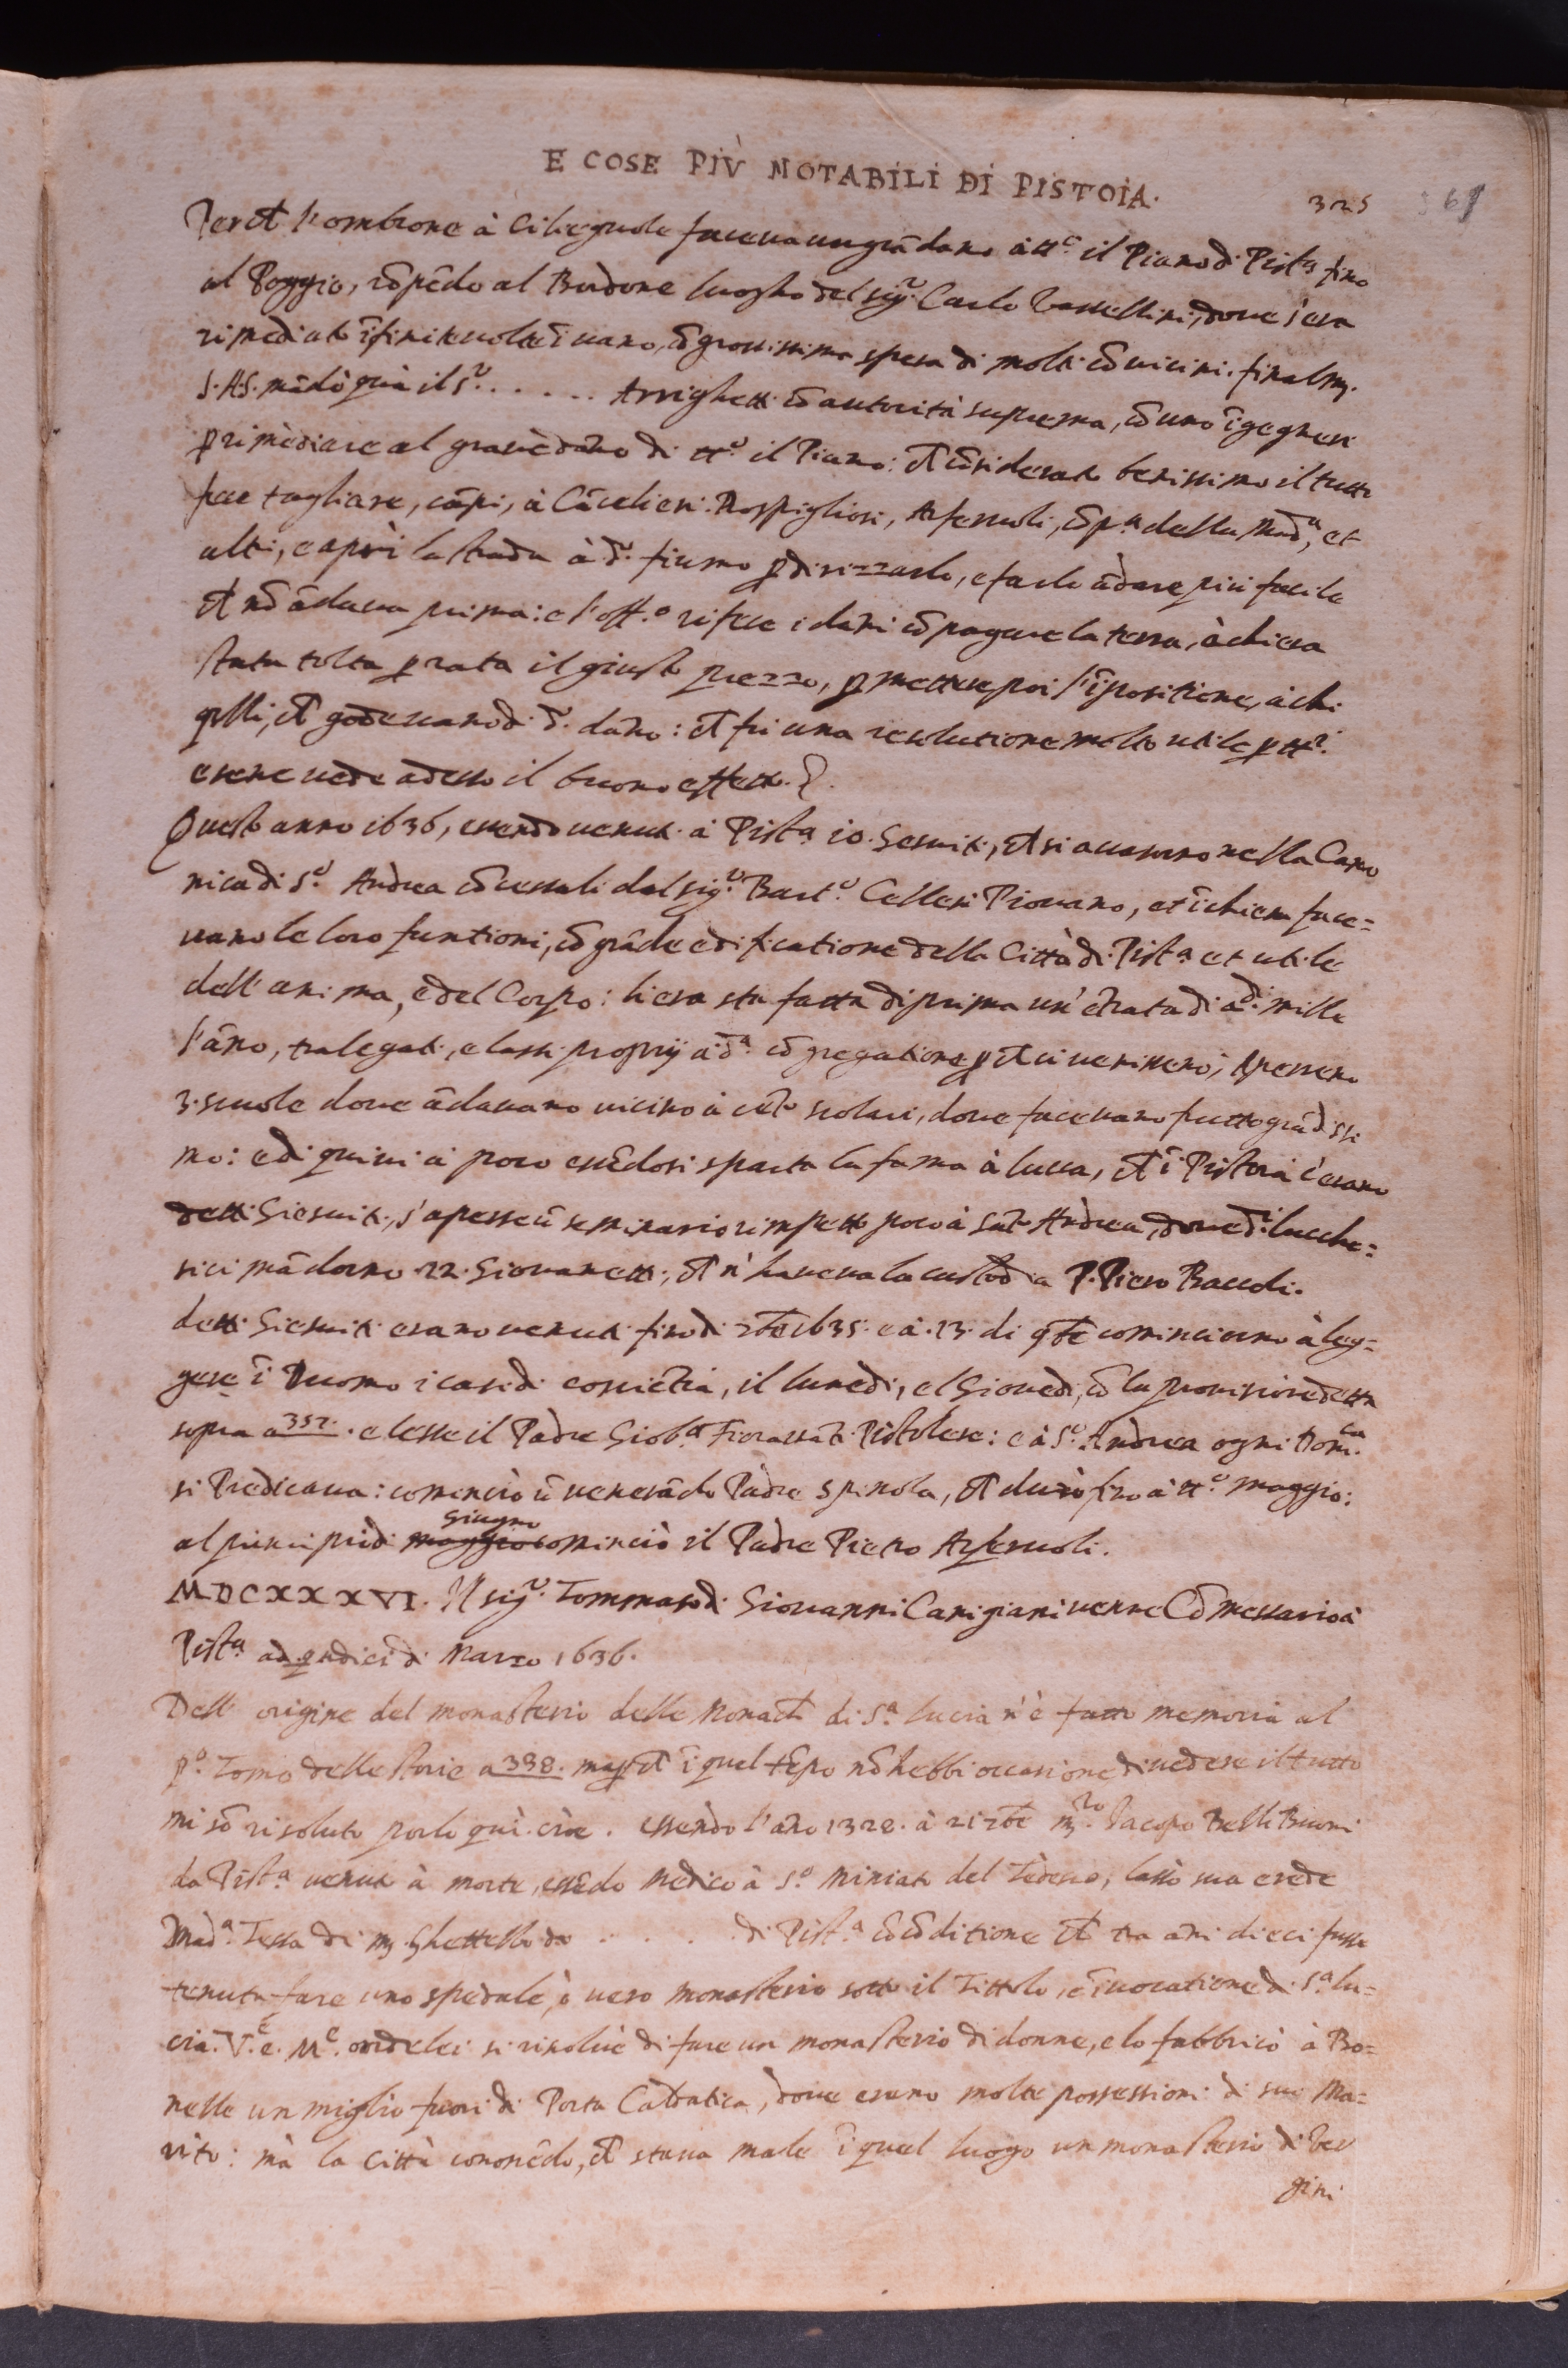 E COSE PIÙ NOTABILI DI PISTOIA.
325 361
Perche l'ombrone à Ciliegiuole faceva un grã dano à tt.o il Piano di Pist.a fino
al Poggio, rõpẽdo al Bordone luogho del sig.r Carlo Tassellini, dove s'era
rimediato ĩfinite volte ĩ vano, cõ grossissima spesa di molti cõvicini. finalm.
S. AS. mãdò quà il S.r . . . . . Arrighetti cõ autorità suprema, cõ uno ĩgegneri
p rimediare al grave dano di tt.o il Piano: che cõsiderato benissimo il tutto
fece tagliare, cãpi, à Cãcelieri. Rospigliosi, Arferuoli, Op.a della Mad.a, et
altri, e aprì la strada à d.o fiume p dirizzarlo, e farlo ãdare più facile
che nõ ãdava prima: e l'off.o rifece i dãni cõ pagare la terra, à chi era
stata tolta p rata il giusto prezzo, p mettere poi l'ĩpositione, à chi
qlli, che godevano di d.o dano: che fù una resolutione molto utile p tt.i
e sene vede adesso il buono effetto.
Questo anno 1636, essendo venuti à Pist.a 10. Gesuiti, che si avevano nella Cano
nica di S.o Andrea cõcessali dal sig.r Bart.o Cellesi Piovano, et ĩ chiesa face=
vano le loro funtioni, cõ grãde edificatione della Città di Pist.a et utile
dell' anima, e del Corpo: li era sta fatta di prima un' ẽtrata di d.i mille
l'ãno, tra legati, e lassi proprij à d.a cõgregatione p che ci venissero, apersero
3. scuole dove ãdavano vicino à cẽto scolari, dove facevano frutto grãdissi
mo: e di quivi à poco essẽdosi sparta la fama à lucca, che ĩ Pistoia c'erano
detti Giesuiti, s'aperse ũ seminario rimpetto poco à Sãto Andrea, dove di lucche=
si ci mãdorno 22. Giovanetti, che n'haveva la custodia P. Piero Baccoli.
detti Giesuiti erano venuti fino di 7bre 1635. e à. 13. di 9bre cominciorno à leg=
gere ĩ Duomo i casi di cosciẽtia, il lunedi, e l Giovedi, cõ la provisione detta
sopra a 352. e lesse il Padre Giob.a Fioravanti Pistolese: e à S.o Andrea ogni Dom.ca
si Predicava: cominciò ũ venerãdo Padre Spinola, che durò fino à tt.o maggio:
al principio di maggio Giugno cominciò il Padre Pietro Arferuoli.
MDCXXXVI. Il sig.r Tommaso di Giovanni Canigiani venne Cõmessario à
Pist.a ad qndici di Marzo 1636.
Dell' origine del monasterio delle Monache di S.a lucia n'è fatto memoria al
p.o Tomo delle storie a 338. ma p che ĩ quel tẽpo nõ hebbi occasione di vedere il tutto
mi sõ risoluto porlo quì. cioe. essẽdo l'ãno 1328. à 21 7bre m.ro Jacopo Belli Buoni
da Pist.a venuto à morte, essẽdo Medico à S.o Miniato del Tedesco, lassò sua erede
Mad.a Tessa di m. Ghettello da . . . . di Pist.a cõ cõditione che tra ãni dieci fusse
tenuta fare uno spedale, ò vero monasterio sotto il Tittolo, e ĩvocatione di S.a lu=
cia. V.e e. M.e onde lei si risolvè di fare un monasterio di donne, e lo fabbricò à Bo=
nelle un miglio fuori di Porta Caldatica, dove erano molte possessioni di suo Ma=
rito: mà la Città conoscẽdo, che stava male ĩ quel luogo un monasterio di Ver
gini